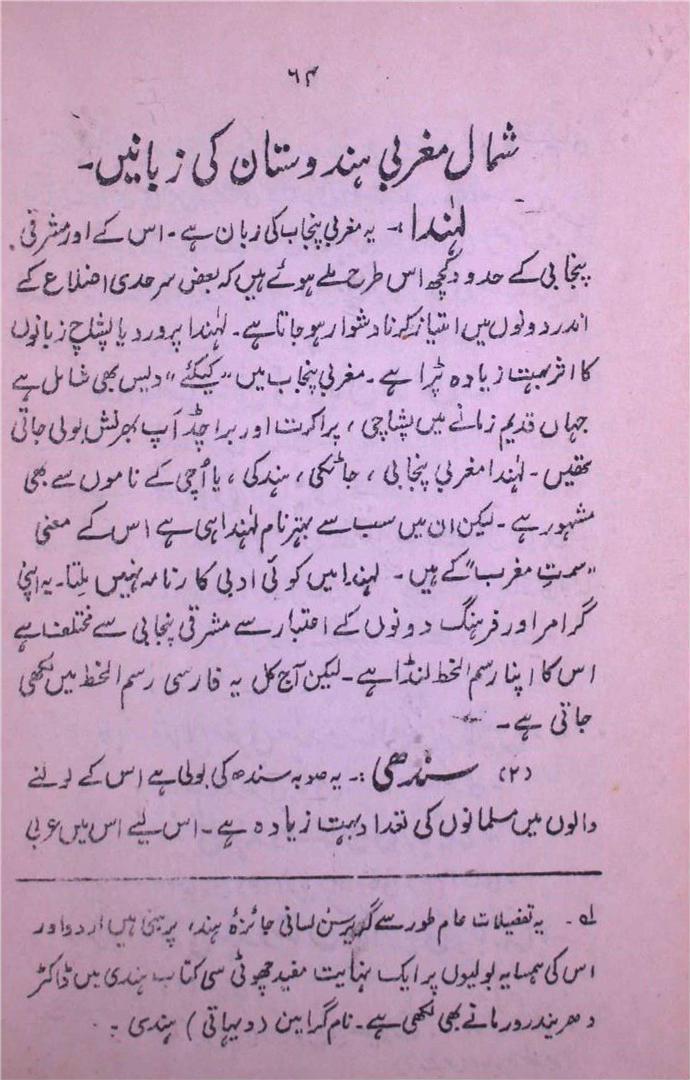 ۶۴
شمال مغربی ہندوستان کی زبانیں۔
لہندا :۔ یہ مغربی پنجاب کی زبان ہے۔ اس کے اور مشرقی
پنجابی کے حدود کچھ اس طرح ملے ہوئے ہیں کہ بعض سرحدی اضلاع کے
اندر دونوں میں امتیاز کرنا دشوار ہو جاتا ہے۔ لہندا پر ورد یا پشاچ زبانوں
کا اثر بہت زیادہ پڑا ہے۔ مغربی پنجاب میں "کیکئے" دیس بھی شامل ہے
جہاں قدیم زمانے میں پشاچی، پراکرت اور براچڈ آپ بھرنش بولی جاتی
تھیں۔ لہندا مغربی پنجابی، جاٹکی، ہندکی، یا اُچی کے ناموں سے بھی
مشہور ہے۔ لیکن ان میں سب سے بہتر نام لہندا ہی ہے اس کے معنی
"سمت مغرب" کے ہیں۔ لہندا میں کوئی ادبی کارنامہ نہیں ملتا۔ یہ اپنی
گرامر اور فرہنگ دونوں کے اعتبار سے مشرقی پنجابی سے مختلف ہے
اس کا اپنا رسم الخط لنڈا ہے۔ لیکن آج کل یہ فارسی رسم الخط میں لکھی
جاتی ہے۔
(۲) سندھی :۔ یہ صوبہ سندھ کی بولی ہے اس کے بولنے
والوں میں مسلمانوں کی تعداد بہت زیادہ ہے۔ اس لیے اس میں عربی
لہ۔ یہ تفصیلات عام طور سے گریرسن لسانی جائزۂ ہند، پر مبنی ہیں اردو اور
اس کی ہمسایہ بولیوں پر ایک نہایت مفید چھوٹی سی کتاب ہندی میں ڈاکٹر
دھریندر ورما نے بھی لکھی ہے۔ نام گرامین (دیہاتی) ہندی۔